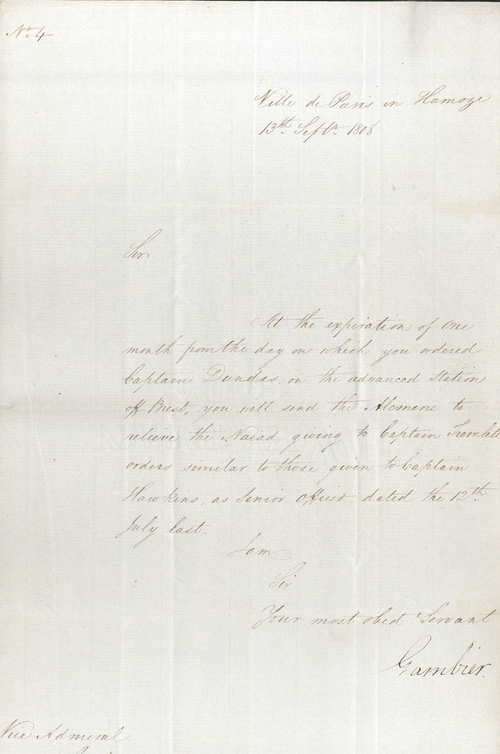 No. 4
Ville de Paris in Hamoze
13th Septr. 1808
Sir
At the expiration of One
month from the day on which you ordered
Captain Dundas on the advanced Station
off Brest, you will send the Alcmene to
relieve the Naiad giving to Captain Tremlett
orders similar to those given to Captain
Hawkins, as Senior Officer dated the 12th
July last.
I am
Sir
Your most obedt Servant
Gambier.
Vice Admiral